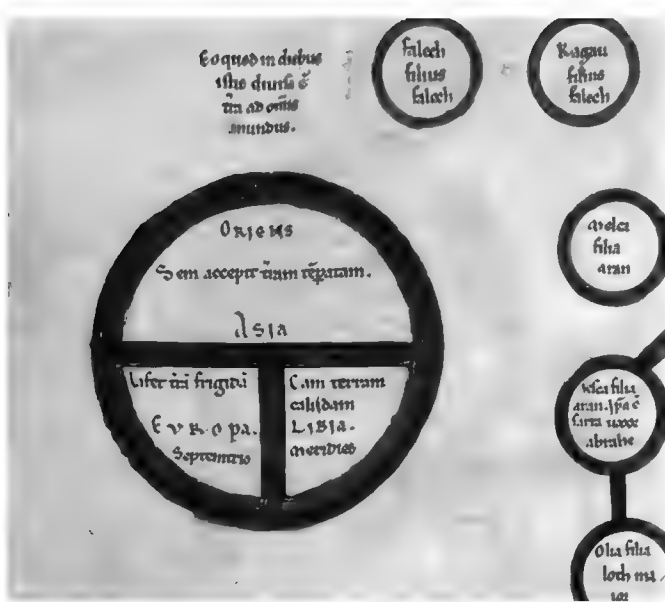 Eo quod in diebus
istis diuisa ē
t̄ra ad om̄is
mundus.
falech
filius
falech
Ragau
filius
falech
ORIENS
Sem accepit t̄ram tēpatam.
ASIA
Iafet t̄rā frigidā
EVROPA.
Septentrio
Cam terram
calidam
LIBIA.
meridies
melca
filia
aran
filia
aran. ip̄a ē
sarra uxor
abrahe
Olia filia
loth ma
ior